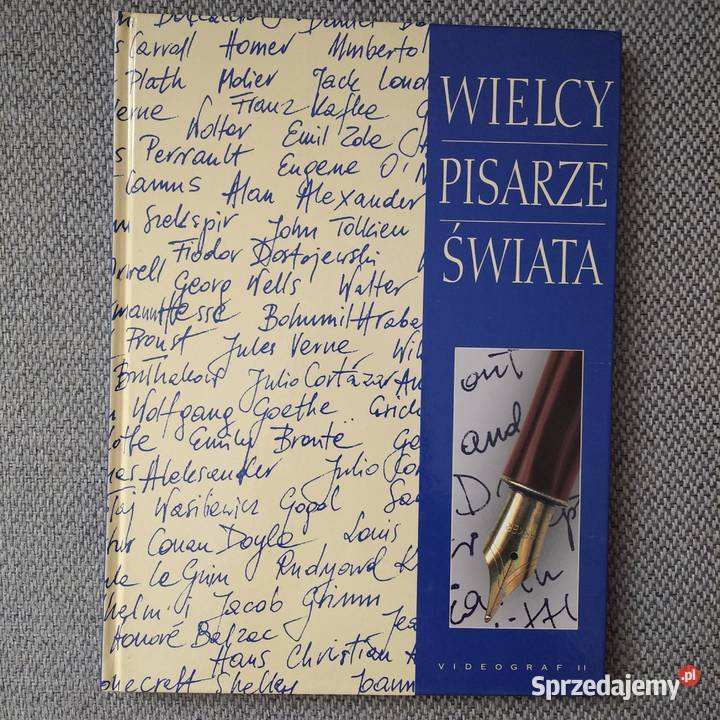 s Carroll Homer Umberto
Plath Molier Jack Lond
Verne Franz Kafka
Wolter Emil Zola
s Perrault Eugene O'N
Camus Alan Alexander
Szekspir John Tolkien
Fiodor Dostojewski
rwell Georg Wells Walter
mann Hesse Bohumil Hraba
Proust Jules Verne, Wil
Bułhakow Julio Cortázar An
Wolfgang Goethe
Emilia Brontë Ge
as Aleksander Julio Cor
łaj Wasiliewicz Gogol Sa
tur Conan Doyle Louis
la Le Guin Rudyard K
helm i Jacob Grimm
Honoré Balzac
Hans Christian A
onecraft Shelley Joann
WIELCY
PISARZE
ŚWIATA
out
and
VIDEOGRAF II
Sprzedajemy.pl